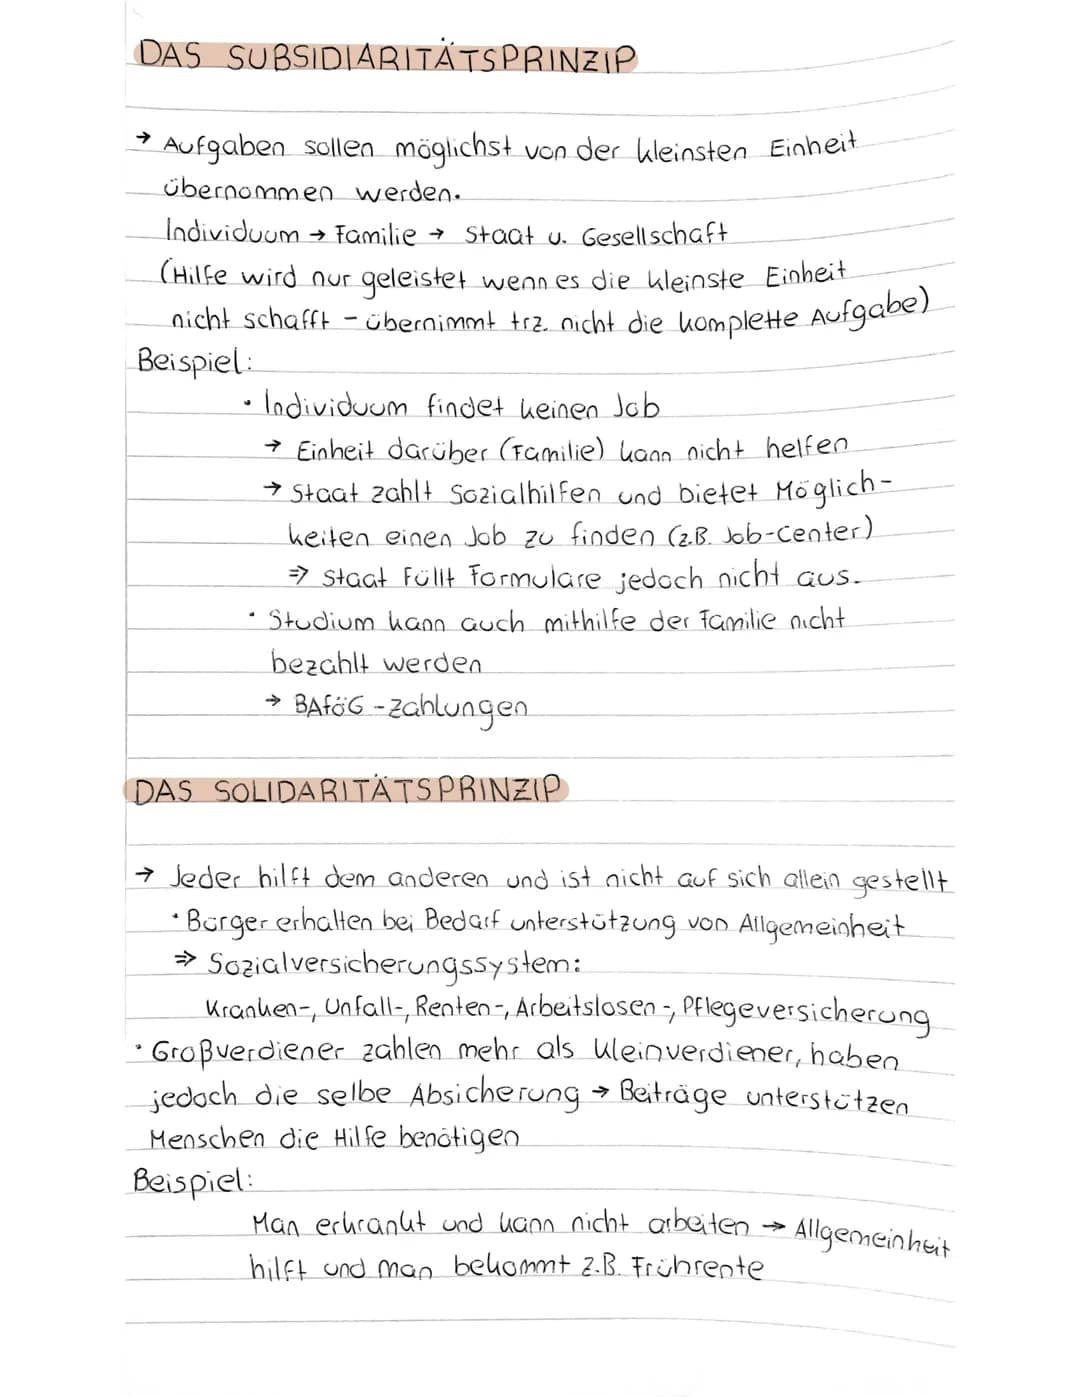 DAS SUBSIDIARITÄTSPRINZIP
→ Aufgaben sollen möglichst von der kleinsten Einheit
übernommen werden.
Individuum → Familie → Staat u. Gesellschaft
(Hilfe wird nur geleistet wenn es die kleinste Einheit
nicht schafft - übernimmt trz. nicht die komplette Aufgabe)
Beispiel:
· Individuum findet keinen Job
→ Einheit darüber (Familie) kann nicht helfen
→ Staat zahlt Sozialhilfen und bietet Möglich-
keiten einen Job zu finden (z.B. Job-Center)
⇒ Staat füllt Formulare jedoch nicht aus.
· Studium kann auch mithilfe der Familie nicht
bezahlt werden
→ BAföG-Zahlungen
DAS SOLIDARITÄTSPRINZIP
→ Jeder hilft dem anderen und ist nicht auf sich allein gestellt
· Bürger erhalten bei Bedarf unterstützung von Allgemeinheit
⇒ Sozialversicherungssystem:
Kranken-, Unfall-, Renten-, Arbeitslosen-, Pflegeversicherung
· Großverdiener zahlen mehr als Kleinverdiener, haben
jedoch die selbe Absicherung → Beiträge unterstützen
Menschen die Hilfe benötigen
Beispiel:
Man erkrankt und kann nicht arbeiten → Allgemeinheit
hilft und man bekommt z.B. Frührente